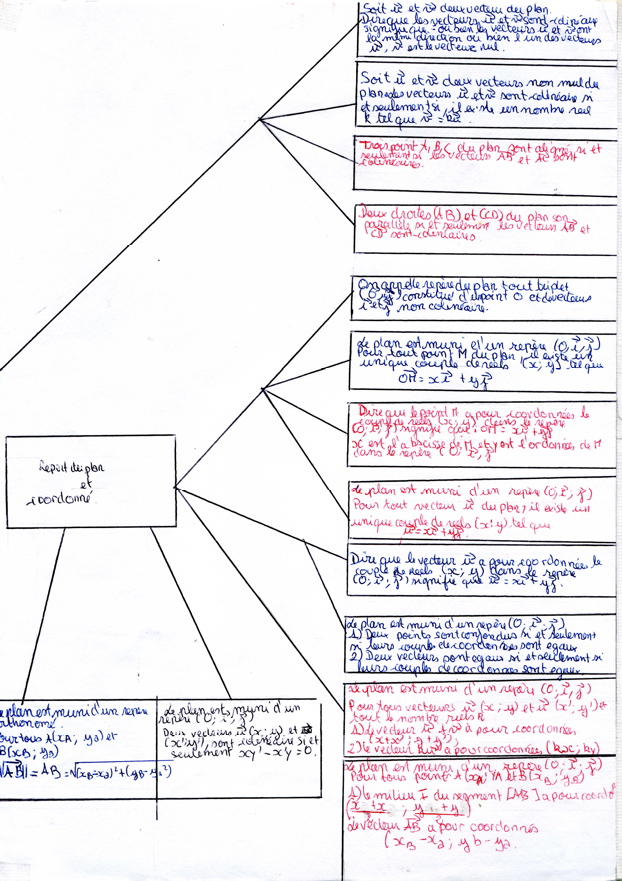 Soit u et v deux vecteur du plan.
Dire que les vecteurs u et v sont colinéaire
signifie que - ou bien les vecteurs u et v ont
la même direction ou bien l'un des vecteurs
u, v est le vecteur nul.
Soit u et v deux vecteurs non nul du
plan les vecteurs u et v sont colinéaire si
et seulement si, il existe un nombre réel
k tel que v = ku
Trois point A, B, C du plan sont aligné si et
seulement si les vecteurs AB et AC sont
colinéaires.
Deux droites (AB) et (CD) du plan son
parallèle si et seulement les vecteurs AB et
CD sont colinéaires.
On appelle repère du plan tout triplet
(O, i, j) constitué d'un point O et de vecteurs
i et j non colinéaire.
Le plan est muni d'un repère (O, i, j)
Pour tout point M du plan il existe un
unique couple de réels (x; y) tel que
OM = xi + yj
Dire que le point M a pour coordonnées le
couple de réels (x; y) dans le repère
(O; i; j) signifie que OM = xi + yj
x est l'abscisse de M et y est l'ordonnée de M
dans le repère (O; i, j)
Le plan est muni d'un repère (O; i, j)
Pour tout vecteur u du plan, il existe un
unique couple de réels (x; y) tel que
u = xi + yj
Dire que le vecteur u a pour coordonnées le
couple de réels (x; y) dans le repère
(O; i; j) signifie que u = xi + yj.
Repère du plan
et
coordonné
Le plan est muni d'un repère (O; i; j)
1) Deux points sont confondus si et seulement
si leurs couples de coordonnées sont égaux
2) Deux vecteurs sont égaux si et seulement si
leurs couples de coordonnées sont égaux.
Le plan est muni d'un repère (O; i, j)
Pour tous vecteurs u (x; y) et v (x', y') et
tout le nombre réels k
1) le vecteur u + v a pour coordonnées
(x + x'; y + y')
2) le vecteur ku a pour coordonnées (kx; ky)
Le plan est muni d'un repère (O; i; j)
Pour tous point A (xA; yA et B (xB; yB)
1) le milieu I du segment [AB] a pour coordo
Le vecteur AB a pour coordonnés
(xB - xa; yb - ya
le plan est muni d'un repère
orthonormé.
Pour tous A (xA; ya) et
B(xB; yB)
||AB|| = AB = √(xB-xa)² + (yB-ya²)
Le plan est muni d'un
repère (O; i, j)
Deux vecteurs u (x; y) et v
(x' y'), sont colinéaire si et
seulement xy' - x'y = 0.